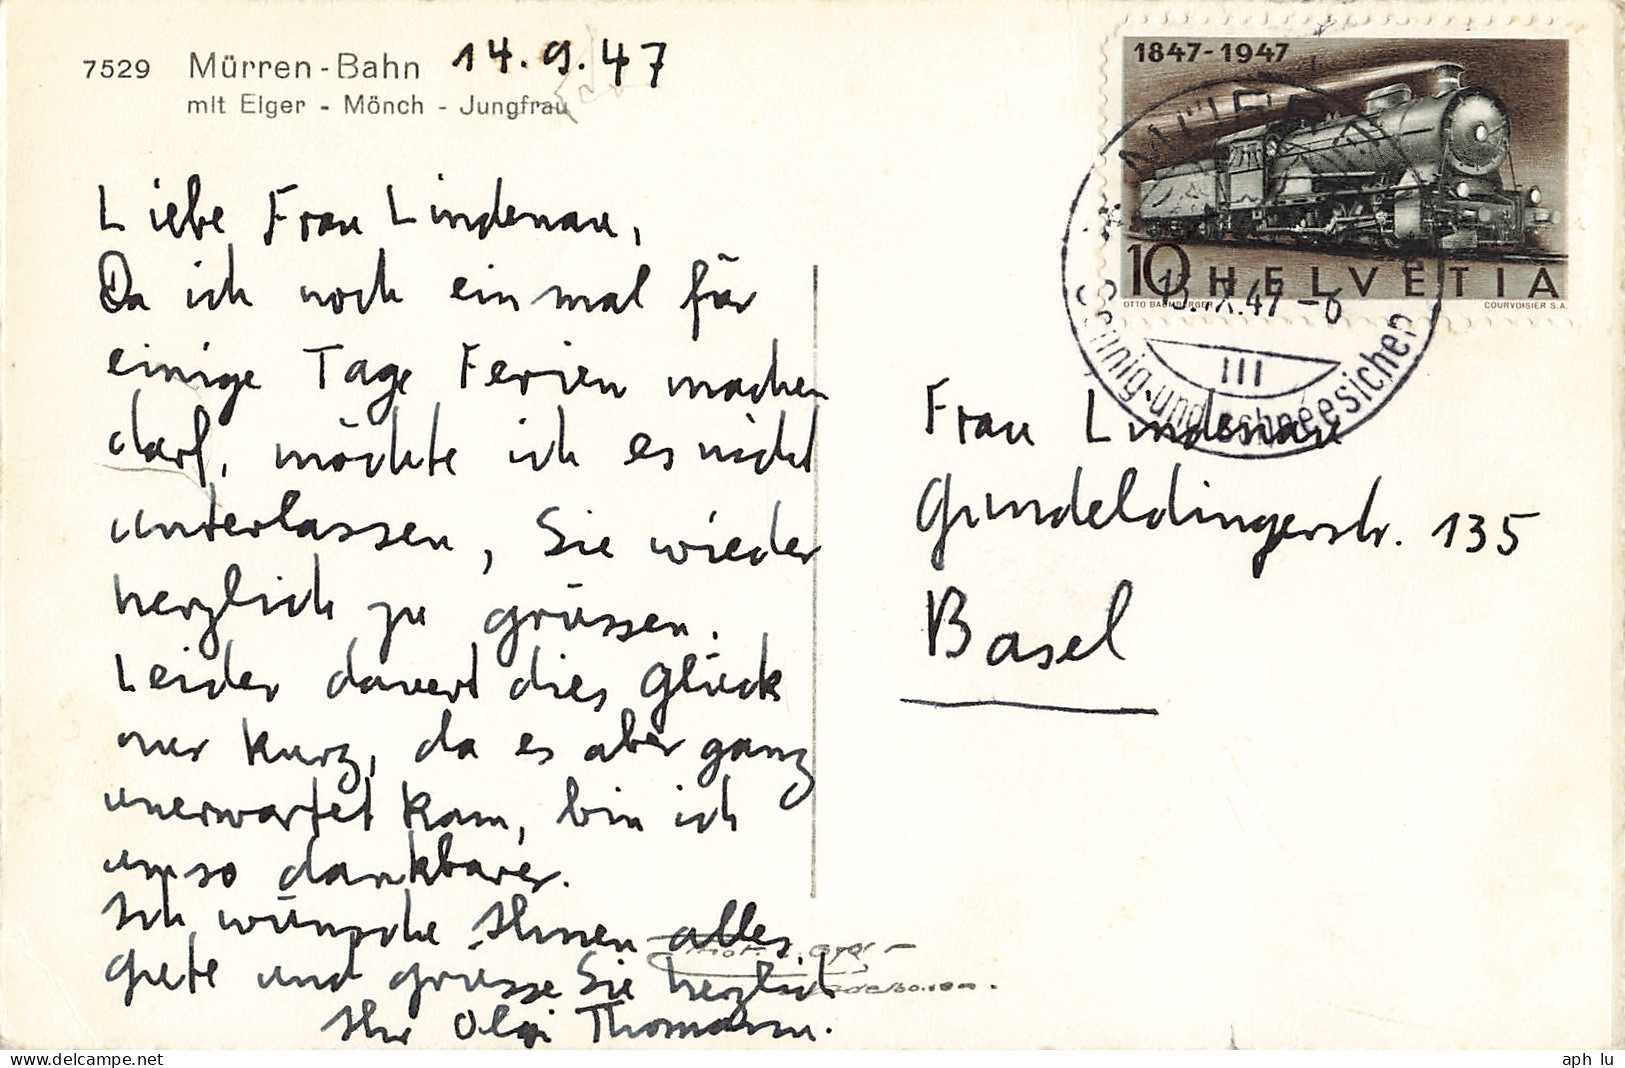 7529 Mürren-Bahn 14.9.47
mit Eiger - Mönch - Jungfrau
Liebe Frau Lindenau,
Da ich noch einmal für
einige Tage Ferien machen
darf, möchte ich es nicht
unterlassen, Sie wieder
herzlich zu grüssen.
Leider dauert dies Glück
nur kurz, da es aber ganz
unerwartet kam, bin ich
umso dankbarer.
Ich wünsche Ihnen alles
Gute und grüsse Sie herzlich
Ihr Olgi Thomann.
1847-1947
10 HELVETIA
OTTO BAUMBERGER COURVOISIER S.A.
MÜRREN
15.IX.47 -6
III
Sonnig-und schneesicher
Frau Lindenau
Gundeldingerstr. 135
Basel
Phot.
aph lu